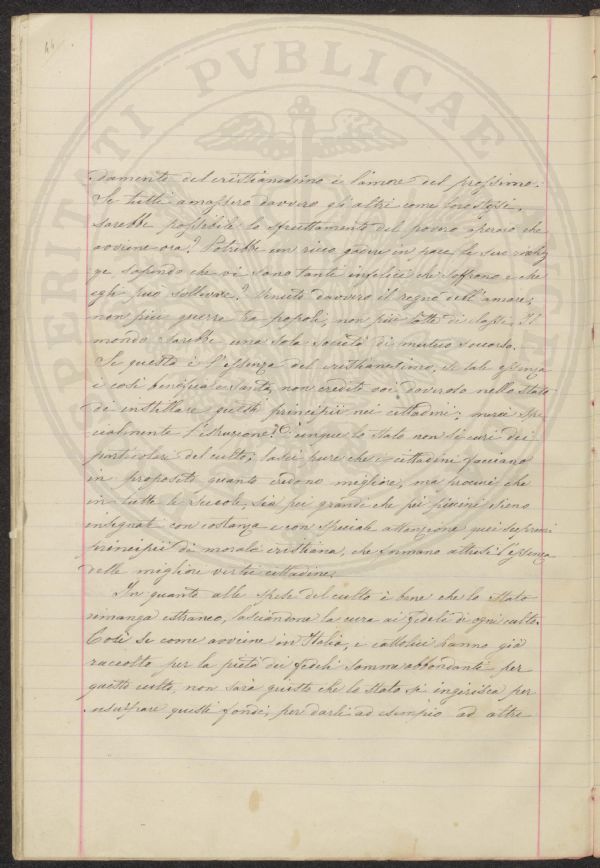 44
damento del cristianesimo è l'amore del prossimo.
Se tutti amassero davvero gli altri come loro stessi,
sarebbe possibile lo sfruttamento del povero operaio che
avviene ora? Potrebbe un ricco godere in pace le sue ricchez
ze sapendo che vi sono tanti infelici che soffrono e che
egli può sollevare? Venuto davvero il regno dell'amore,
non più guerre tra popoli, non più lotte di classe. Il
mondo sarebbe una sola società di mutuo soccorso.
Se questa è l'essenza del cristianesimo, se tale essenza
è così benefica e santa, non credete voi doveroso nello Stato
di instillare questi principii nei cittadini, mercè spe
cialmente l'istruzione? Dunque lo Stato non si curi dei
particolari del culto; lasci pure che i cittadini facciano
in proposito quanto credono migliore, ma procuri che
in tutte le scuole, sia pei grandi che pei piccini siano
insegnati con costanza e con speciale attenzione quei supremi
principii di morale cristiana, che formano altresì l'essenza
delle migliori virtù cittadine.
In quanto alle spese del culto è bene che lo Stato
rimanga estraneo, lasciandone la cura ai fedeli di ogni culto.
Così se come avviene in Italia, i cattolici hanno già
raccolto per la pietà dei fedeli somme abbondanti per
questo culto, non sarà giusto che lo Stato si ingerisca per
usurpare questi fondi, per darli ad esempio ad altre
PERITATI PVBLICAE